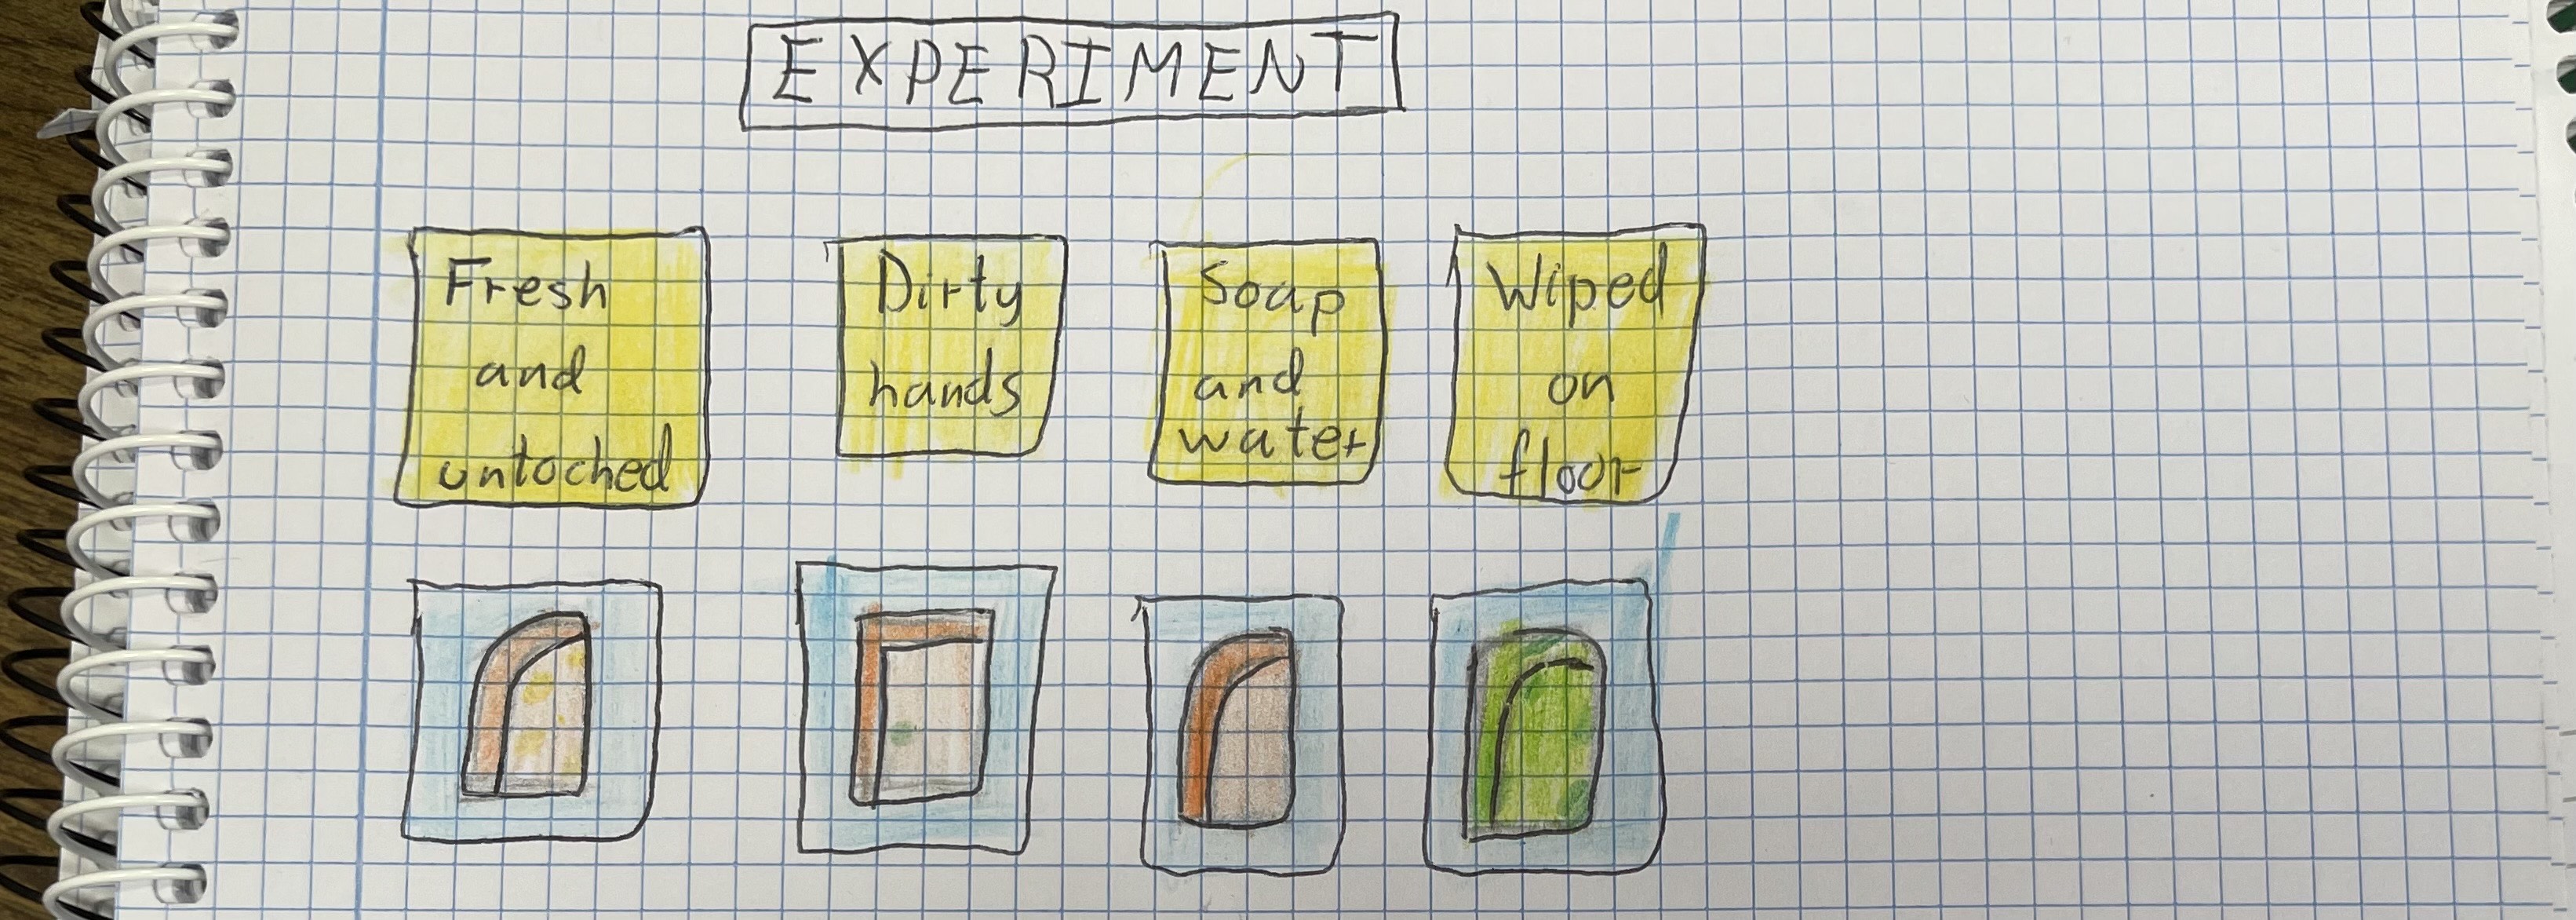 EXPERIMENT
Fresh
and
untoched
Dirty
hands
Soap
and
water
Wiped
on
floor